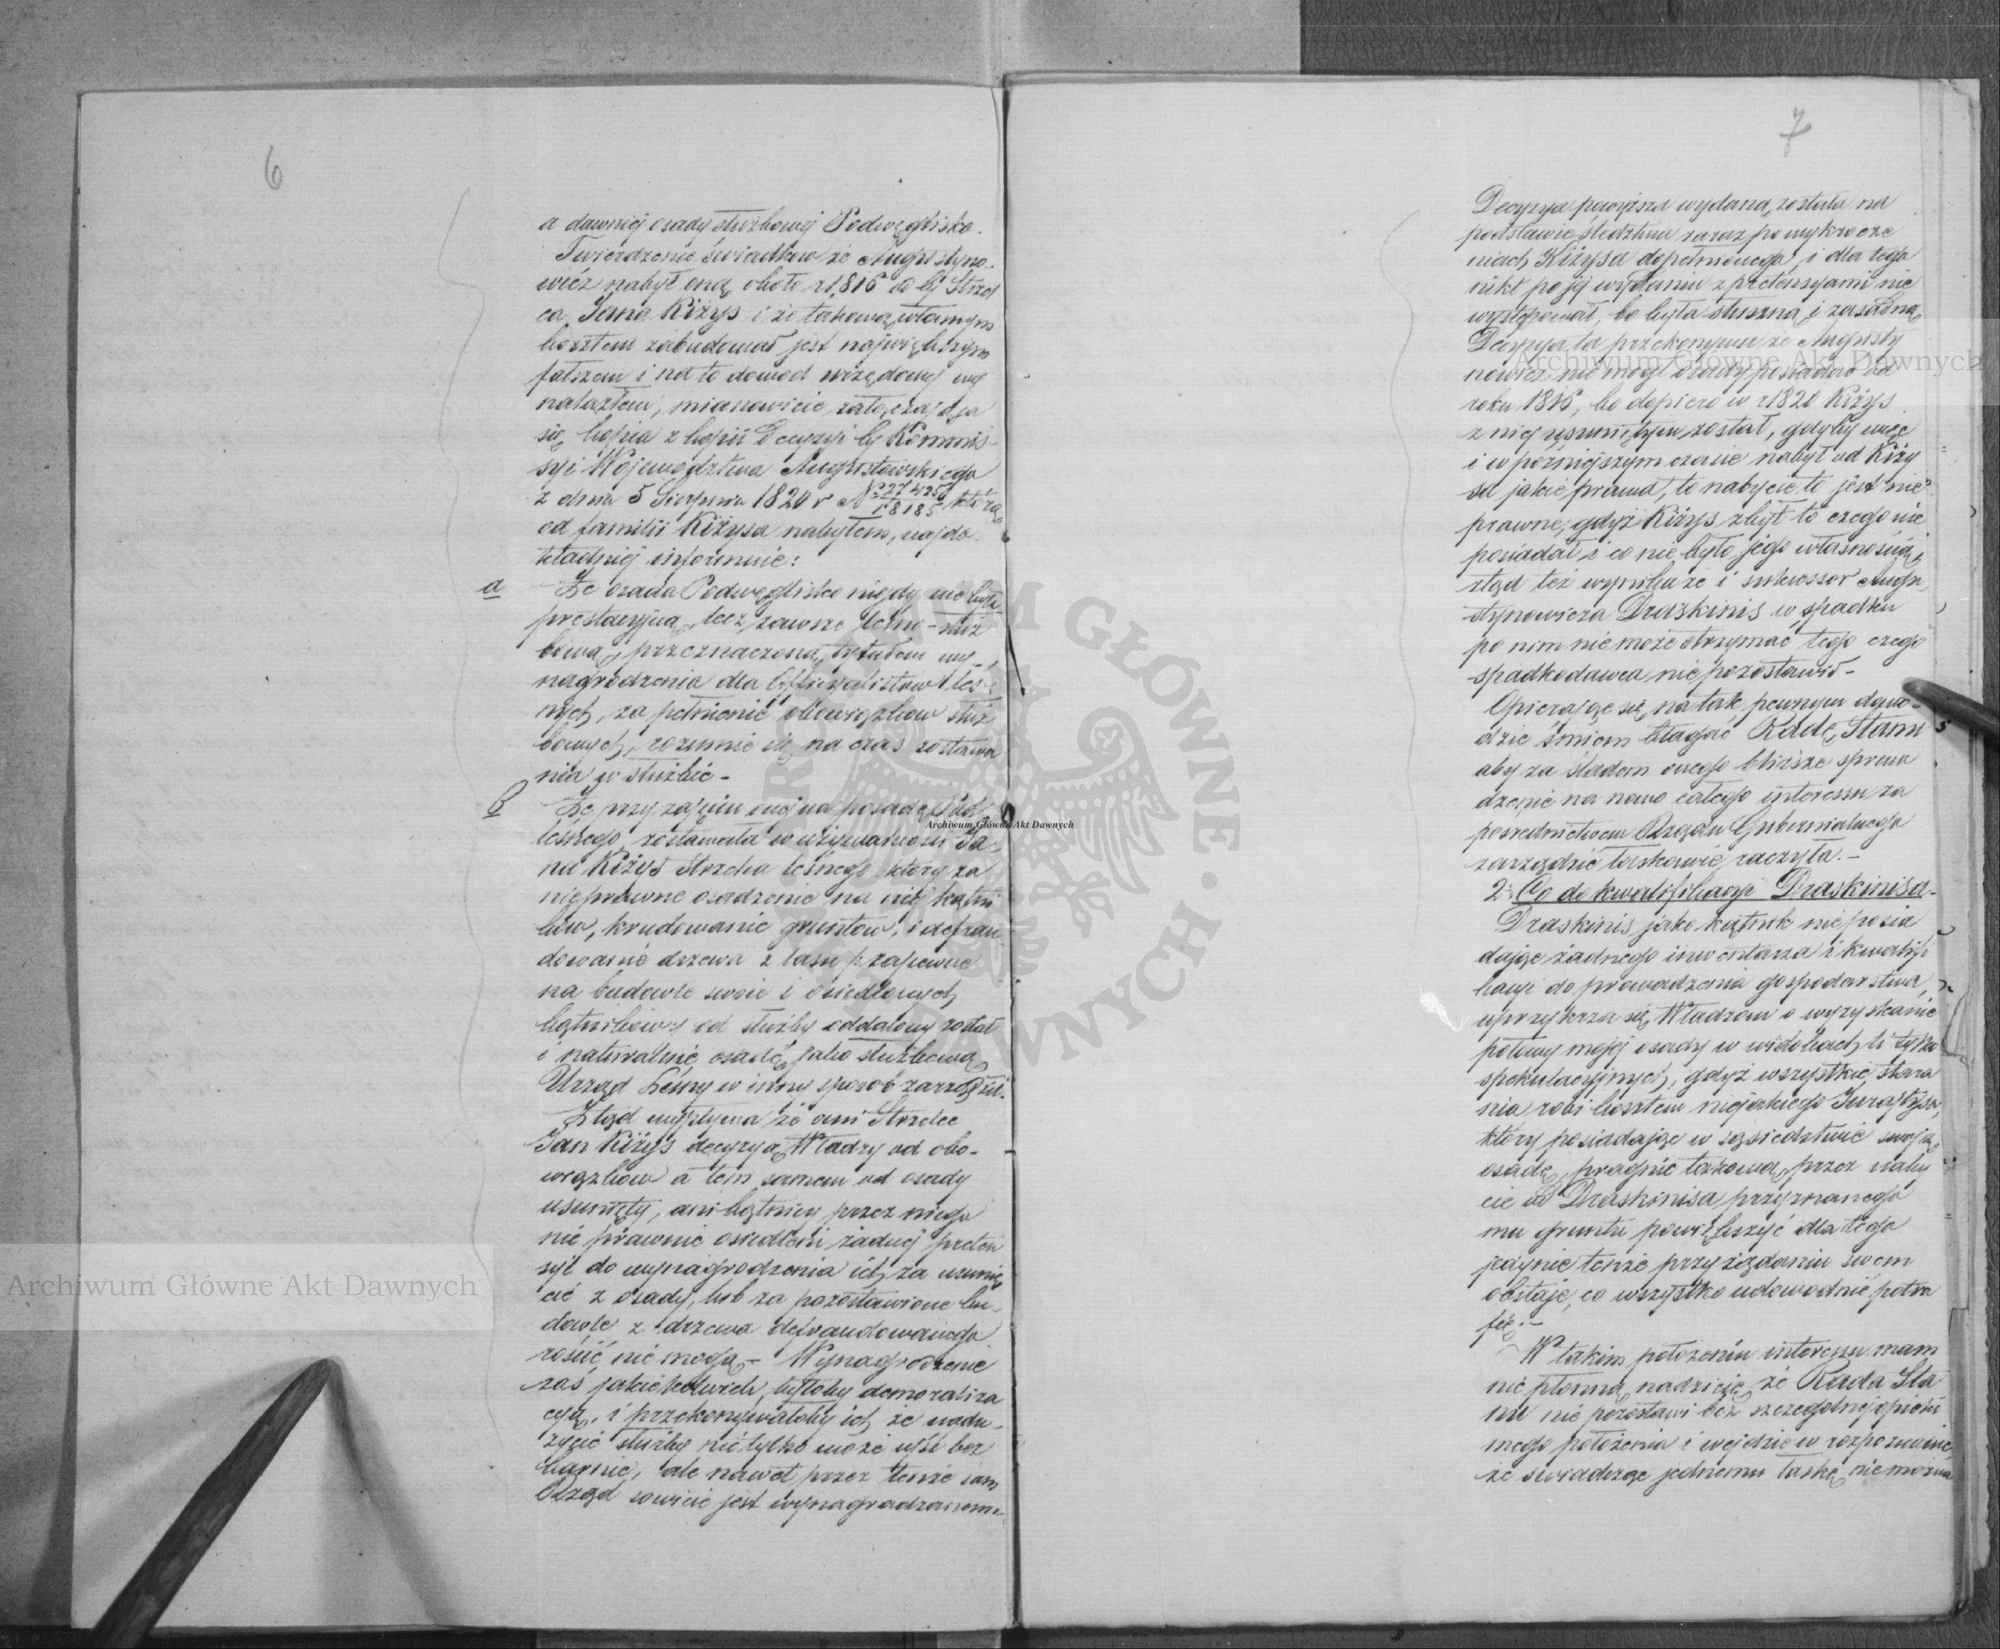 6
a dawniej osady służbowej Podwęglisko.
Twierdzenie świadków że Augustyno-
wicz nabył oną około r 1816 od by Strzel
ca Jana Kiżys i że takową własnym
kosztem zabudował jest największym
fałszem i na to dowod urzędowy wy
nalazłem, mianowicie załączająca
się kopia z kopii Decyzyi by Kommis-
syi Województwa Augustowskiego
z dnia 5 Sierpnia 1820 r No 27425/18185 którą
od familii Kiżysa nabyłem, najdo-
kładniej informuie:
a Że osada Podwęglisko nigdy nie była
prestacyjną, lecz zawsze leśno-służ
bową, przeznaczoną tytułem wy-
nagrodzenia dla Officyalistów leś-
nych, za pełnienie obowiązków służ
bowych, rozumie się na czas zostawa
nia w służbie -
b Że przy zajęciu onej na posadę Pod
leśnego, zostawała w używalności Ja-
na Kiżys Strzelca leśnego który za
nieprawne osadzenie na niej kątni
ków, krudowanie gruntów, i defrau
dowanie drzewa z lasu
na budowle swoie i osiedlonych
kątników od służby oddalony został
i naturalnie osadę jako służbową
Urząd Leśny w inny sposób zarządził.
Ztąd wypływa że ani Strzelec
Jan Kiżys decyzyą Władzy od obo-
wiązków a tem samem od osady
usunięty, ani kątnicy przez niego
nie prawnie osiedleni żadnej preten
syi do wynagrodzenia ich za usunię
cie z osady, lub za pozostawione bu-
dowle z drzewa defraudowanego
rościć nie mogą - Wynagrodzenie
zaś jakiekolwiek, byłoby demoraliza
cyą, i przekonywałoby ich że nadu-
życie służby nie tylko może ujść bez
karnie, ale nawet przez tenże sam
Rząd sowicie jest wynagradzanem.
7
Decyzya powyższa wydana, została na
podstawie śledztwa zaraz po wykrocze
niach Kiżysa dopełnionego, i dla tego
nikt po jej wydaniu z pretensyami nie
występował, bo była słuszną i zasadną.
Decyzya ta przekonywa że Augusty
nowicz nie mógł osady posiadać od
roku 1816, bo dopiero w r 1820 Kiżys
z niej usuniętym został, gdyby więc
i w późniejszym czasie nabył od Kiży
sa jakie prawa, to nabycie to jest nie
prawne, gdyż Kiżys zbył to czego nie
posiadał i co nie było jego własnością,
ztąd też wynika że i sukcessor Augu-
stynowicza Draskinis w spadku
po nim nie może otrzymać tego czego
spadkodawca nie pozostawił -
Opierając się na tak pewnym dowo-
dzie śmiem błagać Radę Stanu
aby za śladem onego bliższe spraw
dzenie na nowo całego interessu za
pośrednictwem Rządu Gubernialnego
zarządzić łaskawie raczyła. -
2o Co do kwalifikacyi Draskinisa -
Draskinis jako kątnik nie posia
dając żadnego inwentarza i kwalifi
kacyi do prowadzenia gospodarstwa,
uprzykrza się Władzom o wyzyskanie
połowy mojej osady w widokach li tylko
spekulacyjnych, gdyż wszystkie stara
nia robi kosztem niejakiego
który posiadając w sąsiedztwie swoją
osadę, pragnie takową przez naby
cie od Draskinisa przyznanego
mu gruntu powiększyć dla tego
jedynie tenże przy żądaniu swem
obstaje, co wszystko udowodnić potra
fię. -
W takim położeniu interessu mam
nie płonną nadzieję że Rada Sta
nu nie pozostawi bez szczególnej opieki
mego położenia i wejdzie w rozpoznanie,
że świadcząc jednemu łaskę nie można